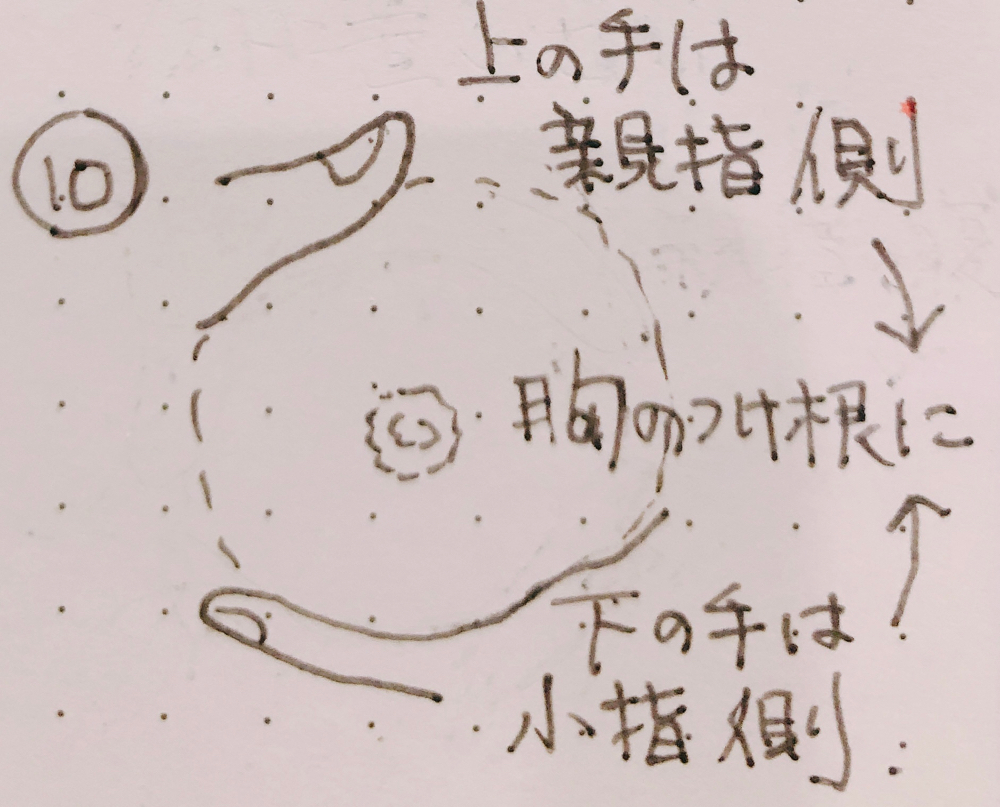 ⑩
上の手は
親指側
胸のつけ根に
下の手は
小指側